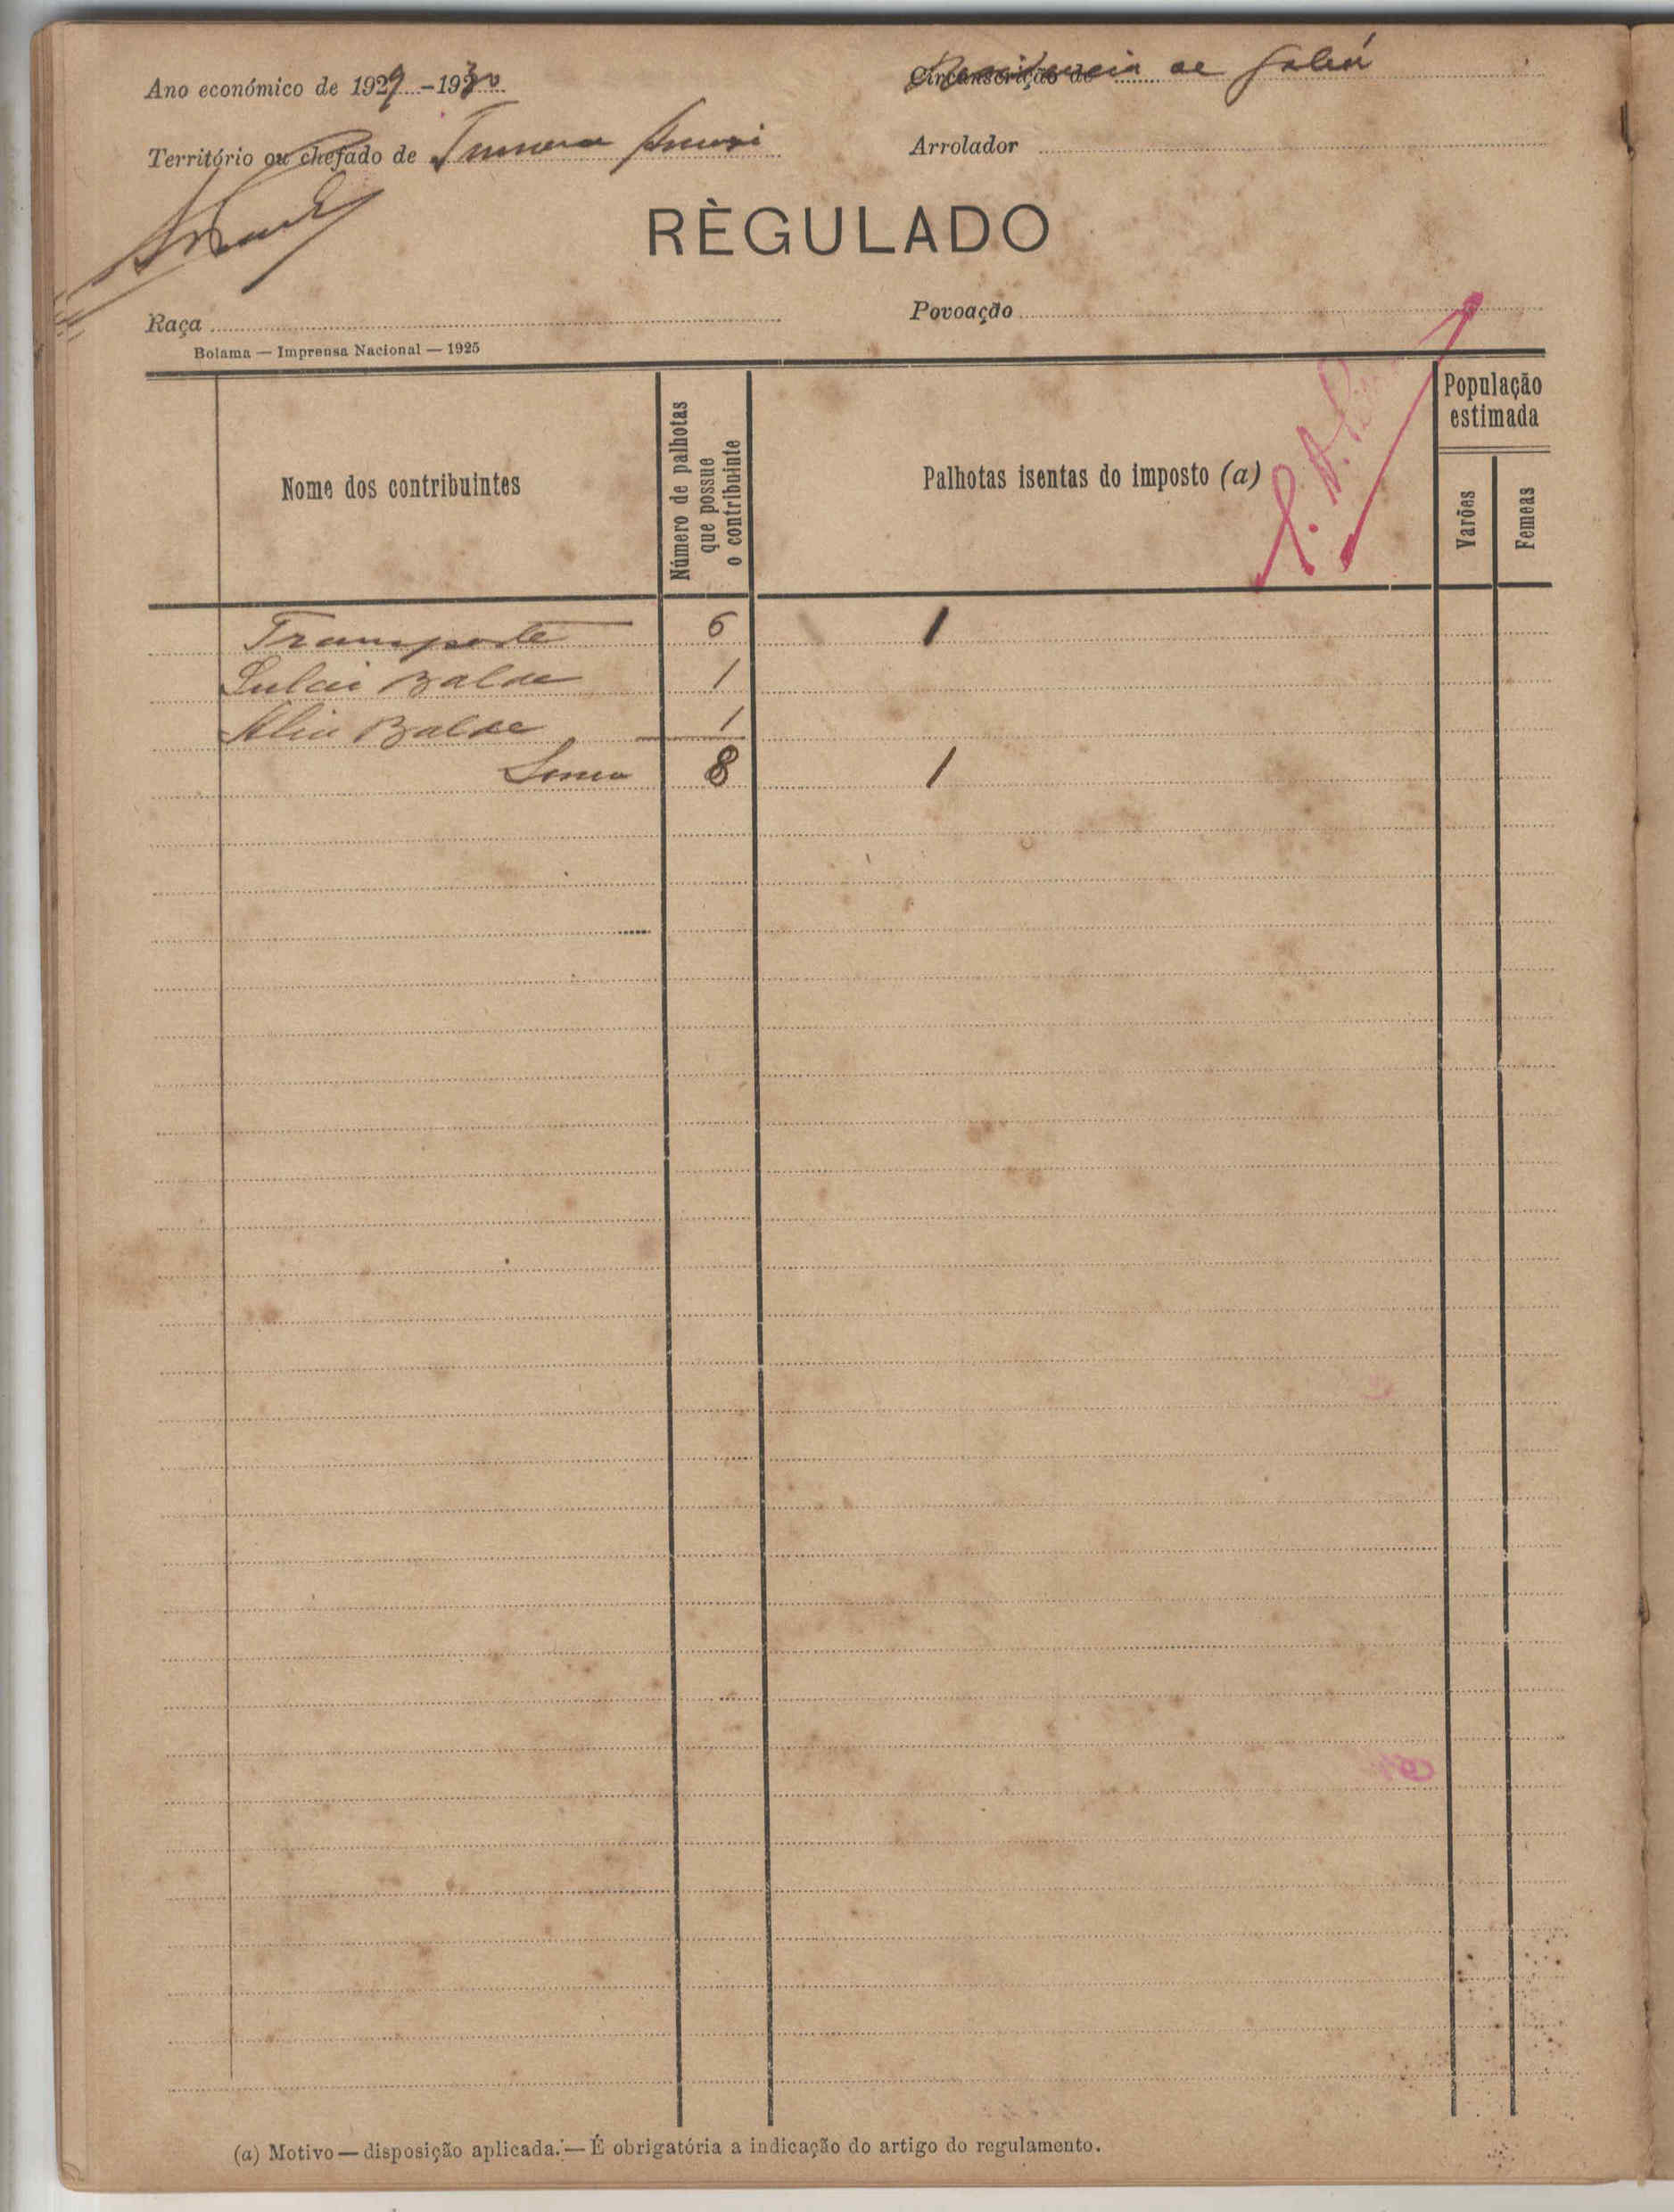 Ano económico de 1929-1930
Residencia de Gabú
Território ou chefado de Tumana
Arrolador
RÈGULADO
Raça
Povoação
Bolama — Imprensa Nacional — 1925
Nome dos contribuintes
Número de palhotas que possue o contribuinte
Palhotas isentas do imposto (a)
População estimada
Varões
Femeas
Transporte 6 1
Sulai Balde 1
Aliu Balde 1
Soma 8 1
(a) Motivo — disposição aplicada. — É obrigatória a indicação do artigo do regulamento.